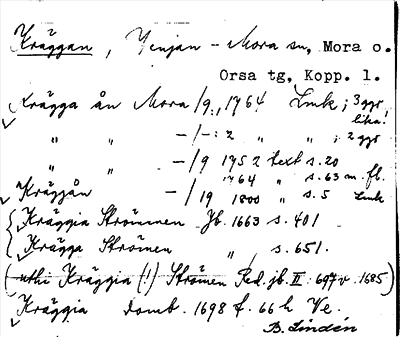 Kräggan, Venjan - Mora sn, Mora o.
Orsa tg, Kopp. l.
Krägga ån Mora /9:, 1764 Lmk; 3 ggr
lika!
" " -/-: 2 " "; 2 ggr
" " -/9 1752 text s. 20
1764 " s. 63 m. fl.
Kräggån -/19 1800 " s. 5 Lmk
Kräggia Strömmen Jb. 1663 s. 401
Krägga Strömen " , s. 651.
(uthi Kräggia (!) Strömen Red. jb. II: 697 v. 1685)
Kräggia Domb. 1698 f. 66 h Ve.
B. Lindén